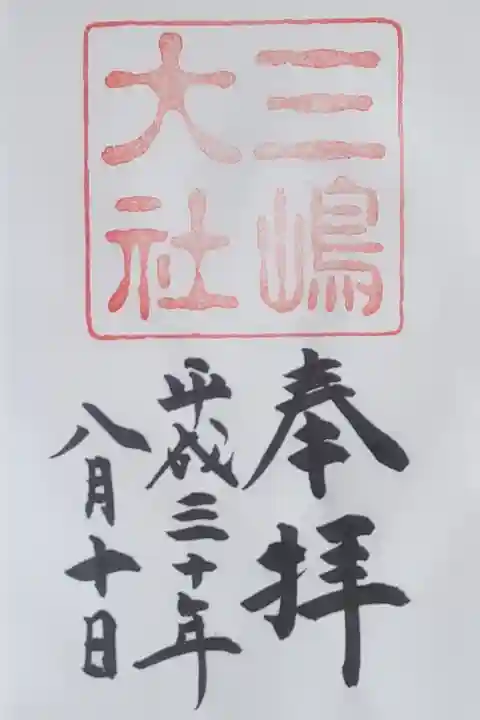 三嶋
大社
奉拝
平成三十年
八月十日